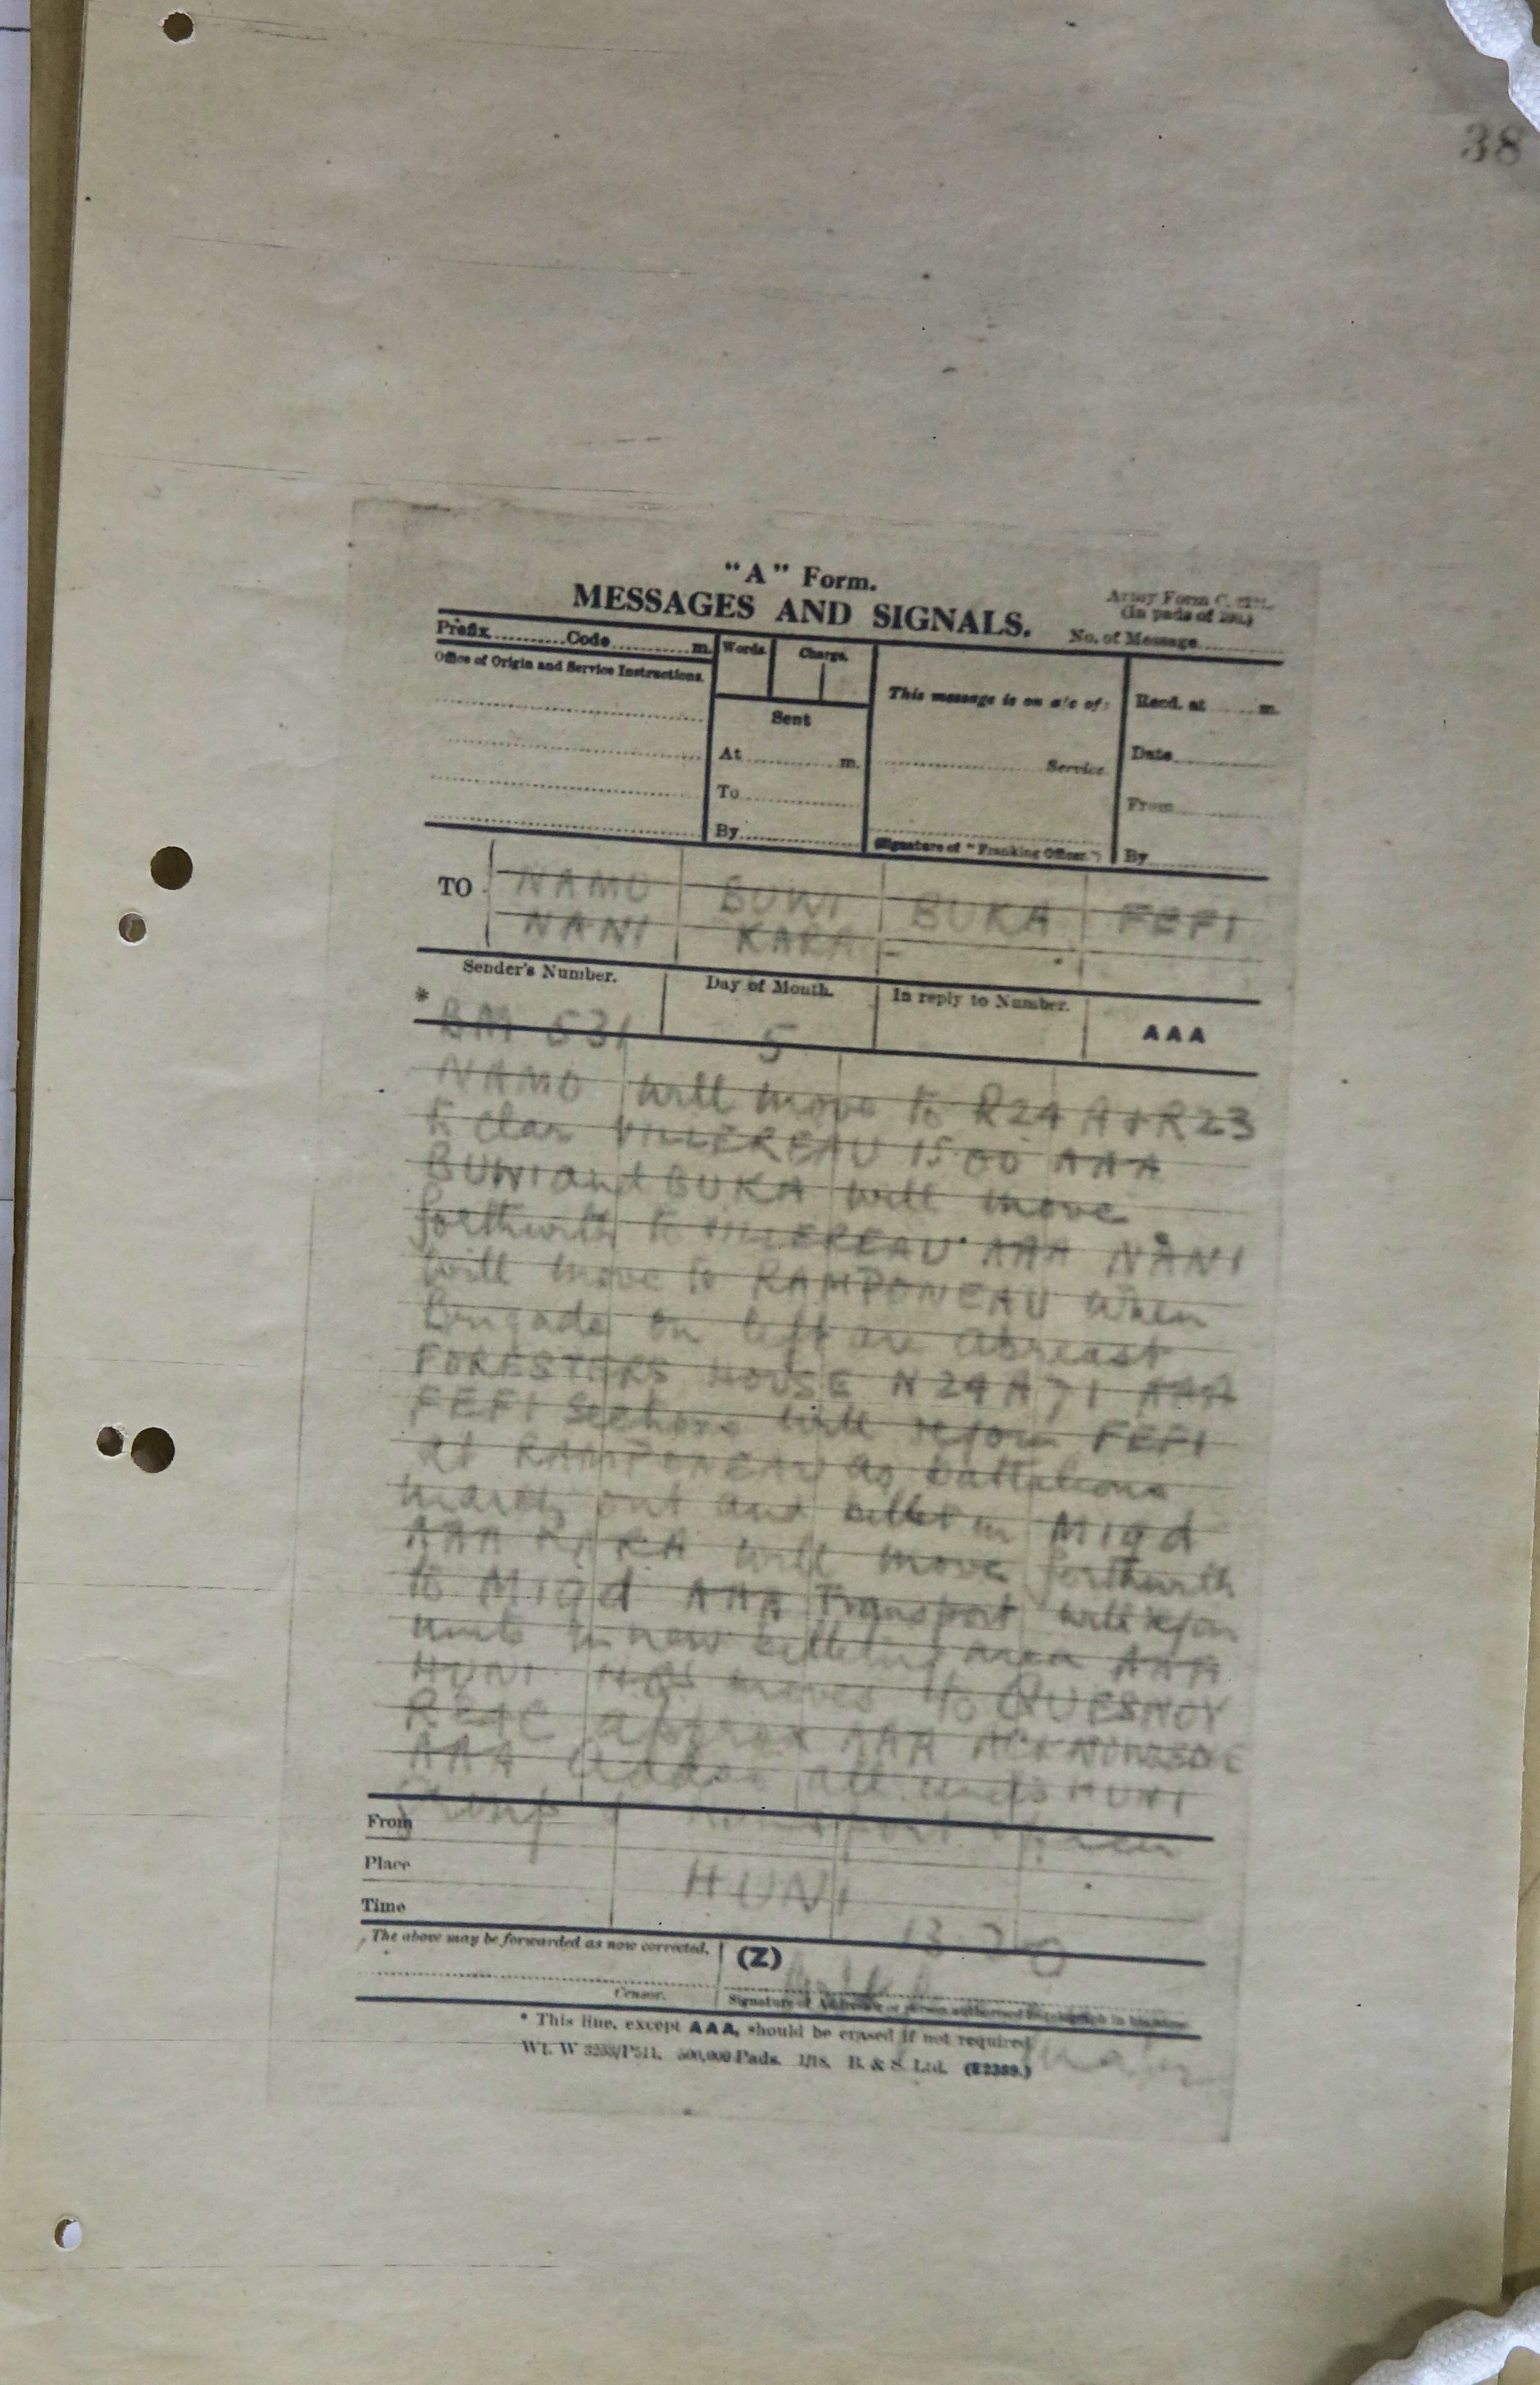 38
"A" Form.
MESSAGES AND SIGNALS.
Army Form C.
(In pads of
No. of Message
Prefix Code m.
Words
Charge.
This message is on a/c of:
Recd. at m.
Office of Origin and Service Instructions.
Sent
At m.
Service
Date
To
From
By
(Signature of "Franking Officer.")
By
TO
NAMO BUWI BUKA FEFI
NANI KARA -
Sender's Number.
Day of Month.
In reply to Number.
AAA
* BM 531 5
NAMO will move to R24 A & R23
to clear VILLEREAU 15 00 AAA
BUWI and BUKA will move
forthwith to VILLEREAU AAA NANI
will move to RAMPONEAU when
brigade on left are abreast
FORESTERS HOUSE N 24 A 7 1 AAA
FEFI Sections will rejoin FEFI
at RAMPONEAU as battalions
march out and billet in M19d
AAA KARA will move forthwith
to M19d AAA Transport will rejoin
units in new billeting area AAA
HUNI HQ moves to QUESNOY
R24C approx AAA ACKNOWLEDGE
AAA all units HUNI
Group
From
Place HUNI
Time 13 20
The above may be forwarded as now corrected.
(Z)
Censor.
Signature of Addressor or person authorised to telegraph in his name.
* This line, except AAA, should be erased if not required
Wt. W 3253/P511. 500,000 Pads. 1/18. B. & S. Ltd. (E2389.)
Major